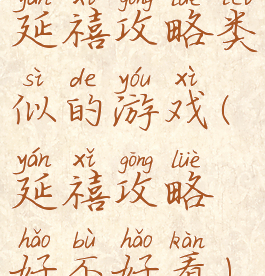 yán xǐ gōng lüè lèi
延禧攻略类
sì de yóu xì
似的游戏(
yán xǐ gōng lüè
延禧攻略
hǎo bù hǎo kàn
好不好看)